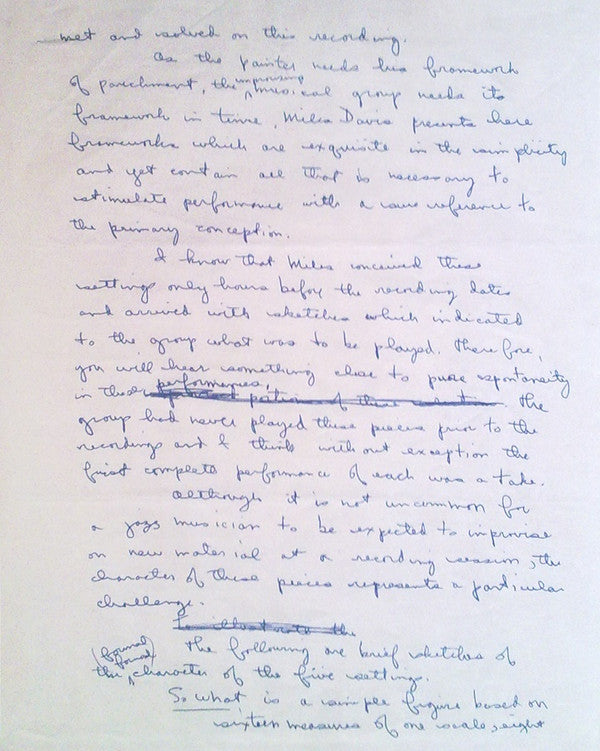 met and solved on this recording.
As the painter needs his framework
of parchment, the improvising musical group needs its
framework in time. Miles Davis presents here
frameworks which are exquisite in their simplicity
and yet contain all that is necessary to
stimulate performance with a sure reference to
the primary conception.
I know that Miles conceived these
settings only hours before the recording dates
and arrived with sketches which indicated
to the group what was to be played. Therefore,
you will hear something close to pure spontaneity
in these performances. The
group had never played these pieces prior to the
recordings and I think without exception the
first complete performance of each was a take.
Although it is not uncommon for
a jazz musician to be expected to improvise
on new material at a recording session, the
character of these pieces represents a particular
challenge.
To illustrate the
The following are brief sketches of
the formal character of the five settings.
So what is a simple figure based on
sixteen measures of one scale, eight